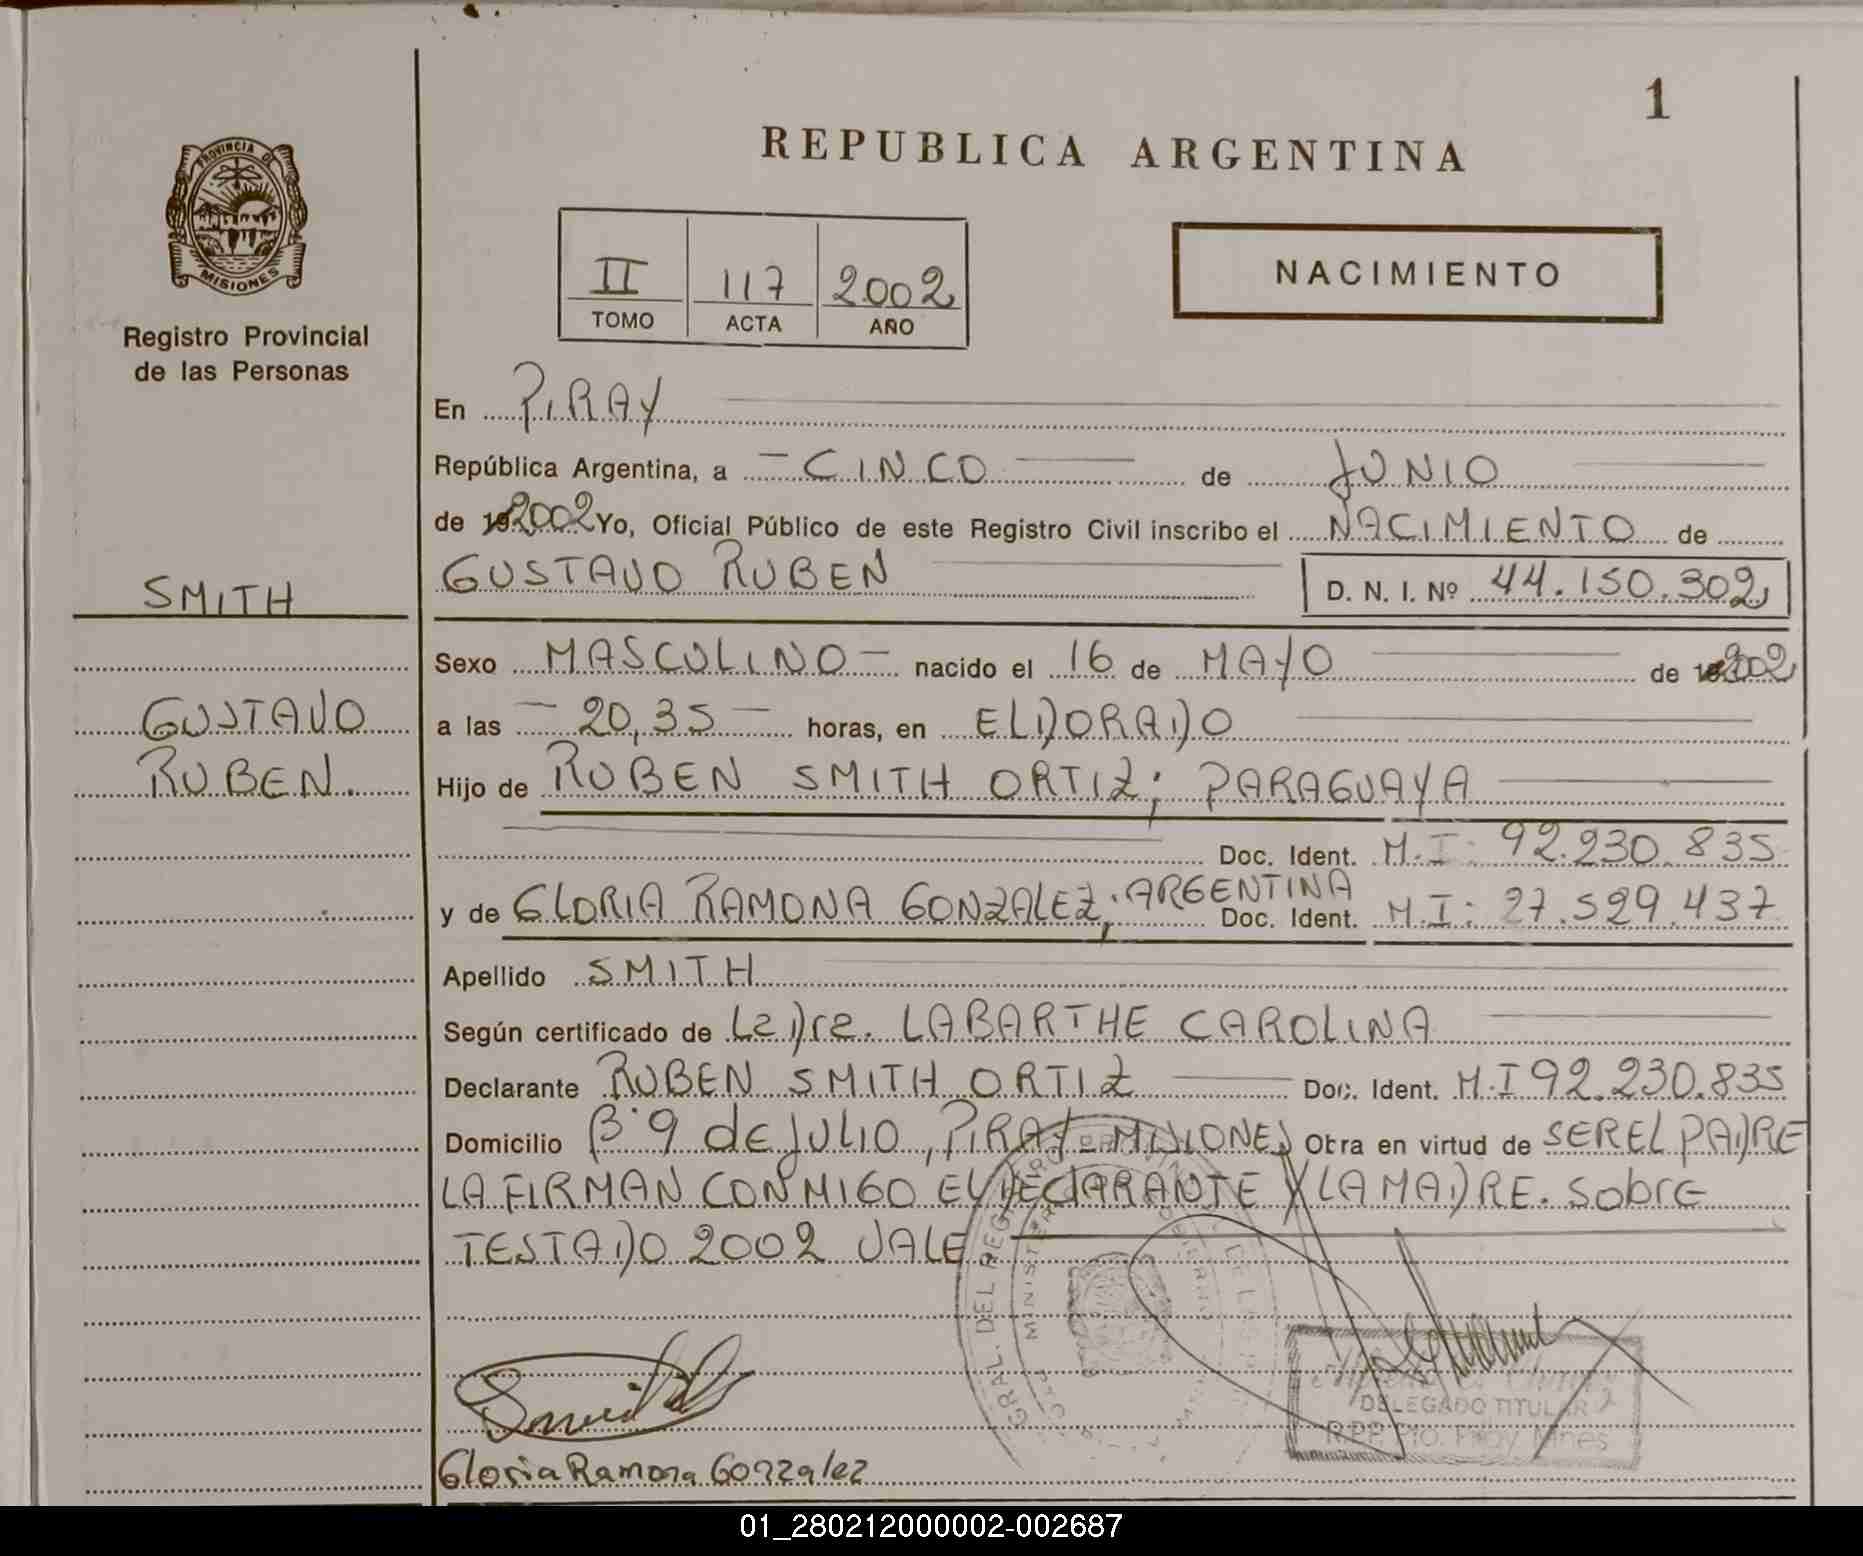 1
REPUBLICA ARGENTINA
PROVINCIA DE
MISIONES
Registro Provincial
de las Personas
II 117 2002
TOMO ACTA AÑO
NACIMIENTO
En PIRAY
República Argentina, a - CINCO de JUNIO
de 192002 Yo, Oficial Público de este Registro Civil inscribo el NACIMIENTO de
GUSTAVO RUBEN D. N. I. Nº 44.150.302
SMITH
Sexo MASCULINO - nacido el 16 de MAYO de 192002
GUSTAVO
a las - 20,35 - horas, en ELDORADO
RUBEN.
Hijo de RUBEN SMITH ORTIZ; PARAGUAYA
Doc. Ident. M.I: 92.230.835
y de GLORIA RAMONA GONZALEZ; ARGENTINA Doc. Ident. M.I: 27.529.437
Apellido SMITH
Según certificado de La Dra. LABARTHE CAROLINA
Declarante RUBEN SMITH ORTIZ Doc. Ident. M.I 92.230.835
Domicilio Bº 9 de JULIO, PIRAY - MISIONES Obra en virtud de SER EL PADRE
LA FIRMAN CONMIGO EL DECLARANTE Y LA MADRE. Sobre
TESTADO 2002 VALE
GRAL. DEL REG
MINISTER
DELEGADO TITULAR
R.P.P. Pto. Piray Mnes
Gloria Ramona Gonzalez
01_280212000002-002687